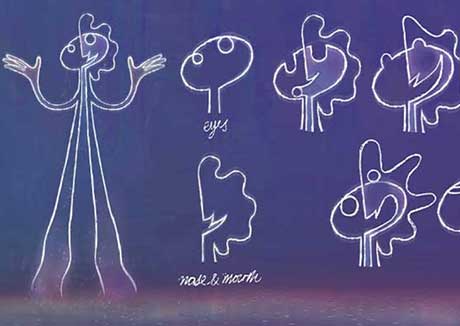 eyes
nose & mouth